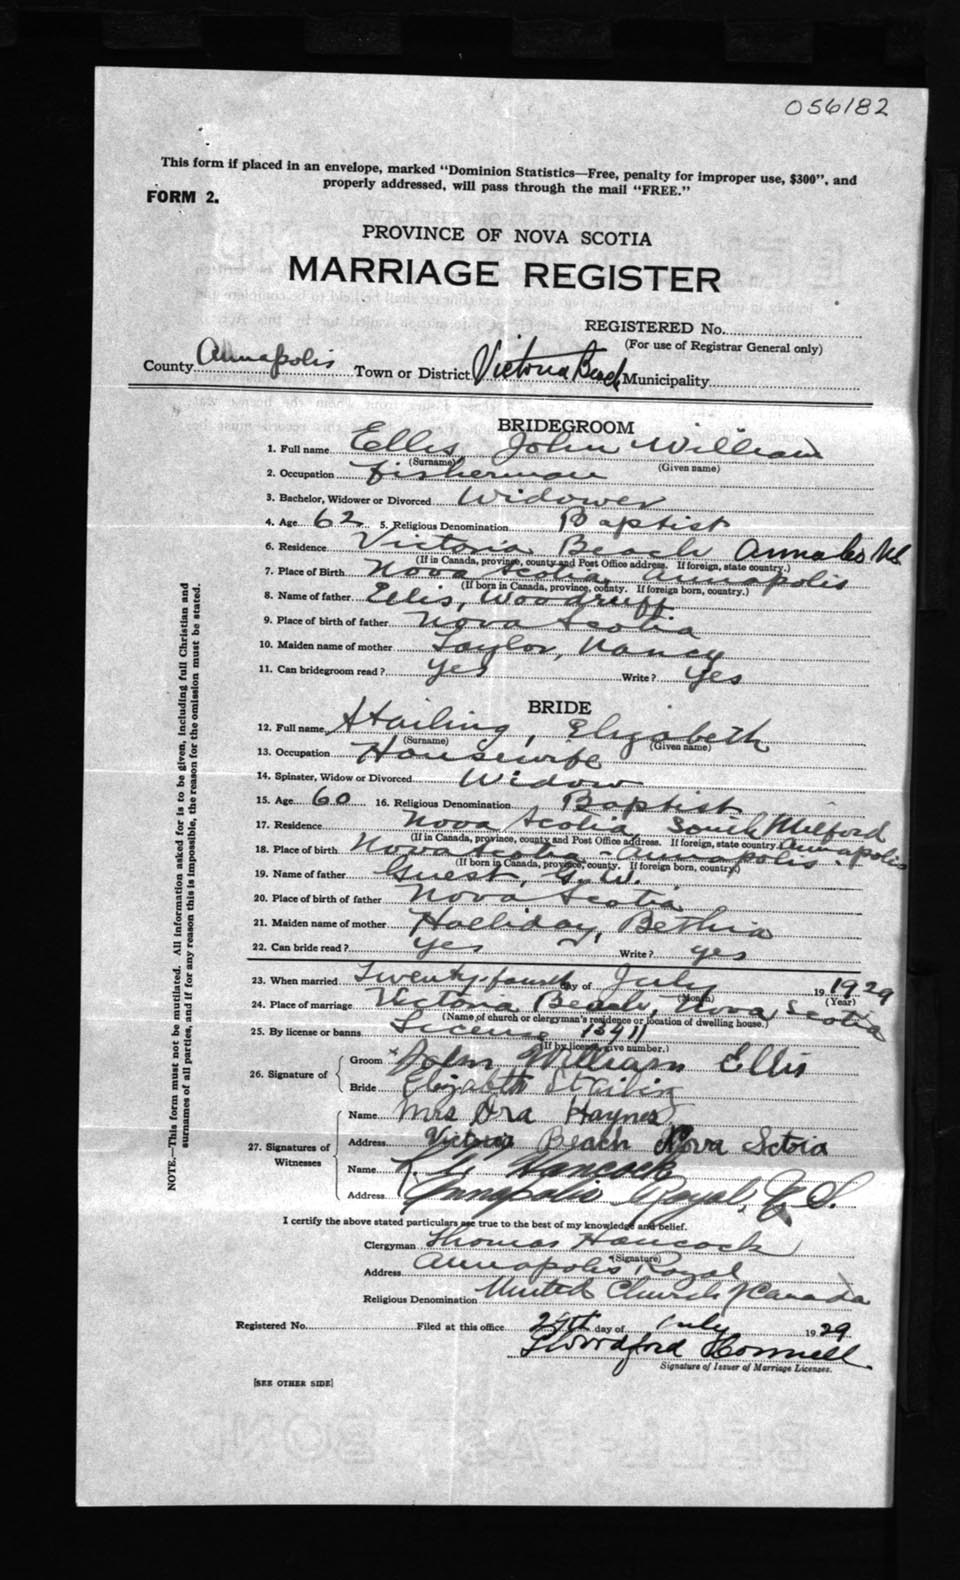 056182
This form if placed in an envelope, marked "Dominion Statistics—Free, penalty for improper use, $300", and
properly addressed, will pass through the mail "FREE."
FORM 2.
PROVINCE OF NOVA SCOTIA
MARRIAGE REGISTER
REGISTERED No.
(For use of Registrar General only)
County Annapolis Town or District Victoria Beach Municipality
BRIDEGROOM
1. Full name Ellis, John William
(Surname) (Given name)
2. Occupation fisherman
3. Bachelor, Widower or Divorced Widower
4. Age 62 5. Religious Denomination Baptist
6. Residence Victoria Beach NS
(If in Canada, province, county and Post Office address. If foreign, state country.)
7. Place of Birth Nova Scotia, Annapolis
(If born in Canada, province, county. If foreign born, country.)
8. Name of father Ellis, Woodruff
9. Place of birth of father Nova Scotia
10. Maiden name of mother Taylor, Nancy
11. Can bridegroom read? yes Write? yes
BRIDE
12. Full name Stailing, Elizabeth
(Surname) (Given name)
13. Occupation Housewife
14. Spinster, Widow or Divorced Widow
15. Age 60 16. Religious Denomination Baptist
17. Residence Nova Scotia, South Milford
(If in Canada, province, county and Post Office address. If foreign, state country.) Annapolis
18. Place of birth Nova Scotia - Annapolis -
(If born in Canada, province, county. If foreign born, country.)
19. Name of father Guest, G. W.
20. Place of birth of father Nova Scotia
21. Maiden name of mother Halliday, Bethia
22. Can bride read? yes Write? yes
23. When married Twenty-fourth day of July 19 1929
(Month) (Year)
24. Place of marriage Victoria Beach, Nova Scotia
(Name of church or clergyman's residence or location of dwelling house.)
25. By license or banns License
(If by license, give number.)
26. Signature of
Groom John William Ellis
Bride Elizabeth Stailing
27. Signatures of Witnesses
Name Mrs Ora Haynes
Address Victoria Beach Nova Scotia
Name Hancock
Address Annapolis Royal, N.S.
I certify the above stated particulars are true to the best of my knowledge and belief.
Clergyman Thomas Hancock
(Signature)
Address Annapolis Royal
Religious Denomination United Church of Canada
Registered No. Filed at this office 24th day of July 19 29
Signature of Issuer of Marriage Licenses.
[SEE OTHER SIDE]
NOTE.—This form must not be mutilated. All information asked for is to be given, including full Christian and
surnames of all parties, and if for any reason this is impossible, the reason for the omission must be stated.